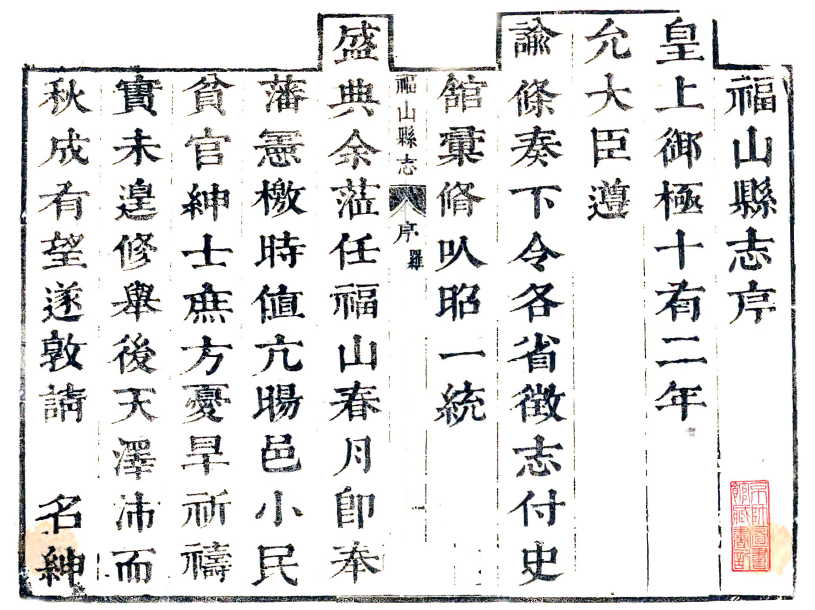 福山縣志序
皇上御極十有二年
允大臣遵
諭條奏下令各省徵志付史
館彙脩以昭一統
福山縣志 序 羅
盛典余蒞任福山春月卽奉
藩憲檄時值亢暘邑小民
貧官紳士庶方憂旱祈禱
實未遑修舉後天澤沛而
秋成有望遂敦請 名紳